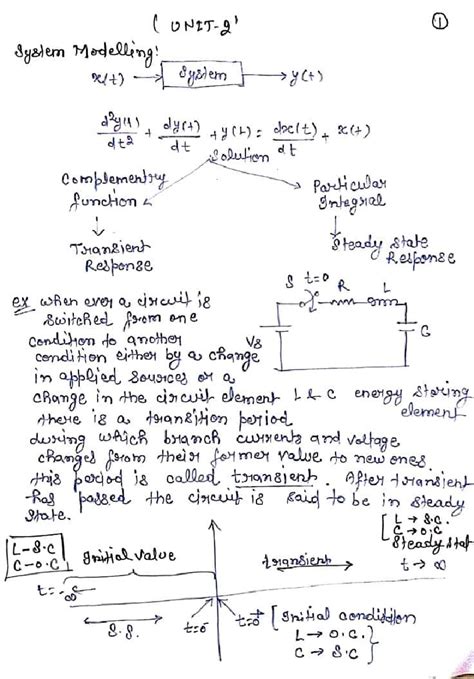 ( UNIT-2'
①
System Modelling:
x(t) → System → y(t)
d²y(t)/dt² + dy(t)/dt + y(t) = dx(t)/dt + x(t)
Solution
Complementry function
Particular Integral
Transient Response
Steady State Response
S t=0 R L
Vs
C
ex when ever a circuit is
switched from one
condition to another
condition either by a change
in applied sources or a
change in the circuit element L & C energy storing element
there is a transition period
during which branch currents and voltage
changes from their former value to new ones
this period is called transient. After transient
has passed the circuit is said to be in steady
state.
L → S.C.
C → O.C
Steady Stat
L-S.C
C-O.C
Initial value
transient
t → ∞
t=-∞
S.S.
t=0⁻
t=0⁺ [Initial condition
L → O.C.
C → S.C